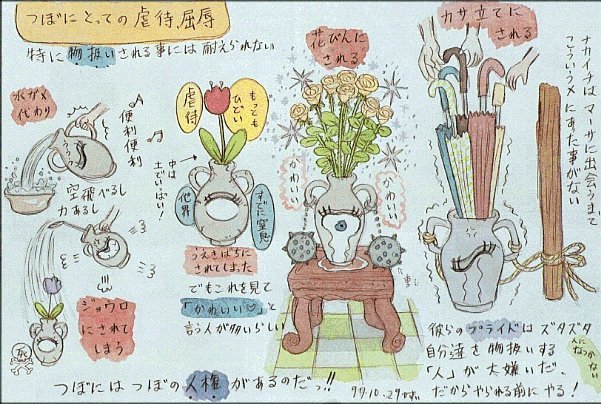 つぼにとっての虐待、屈辱
特に物扱いされる事には耐えられない
水がめ
代わり
便利
便利
空飛べるし
力あるし
ジョウロ
にされて
しまう
死
もっとも
ひどい
虐待
中は
土でいっぱい!
すでに窒息
他界
うえきばちに
されてしまった
でもこれを見て
「かわいい♡」と
言う人が多いらしい
花びんに
される
かわいい
かわいい
カサ立てに
される
ナカイチは マーサに出会うまで
こういうメにあた事がない
彼らのプライドはズタズタ
自分達を物扱いする
「人」が大嫌いだ.
人になつかない
だからやられる前にやる!
つぼにはつぼの人権があるのだっ!!
97.10.29